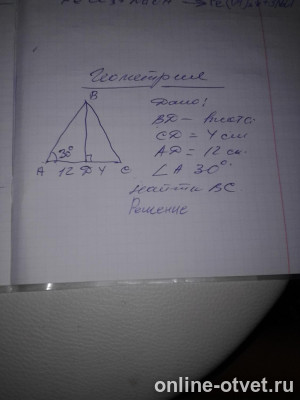 Геометрия
Дано:
BD - высота.
CD = 4 см
AD = 12 см.
∠A 30°.
найти BC
Решение
B
30°
A 12 D 4 C
online-otvet.ru